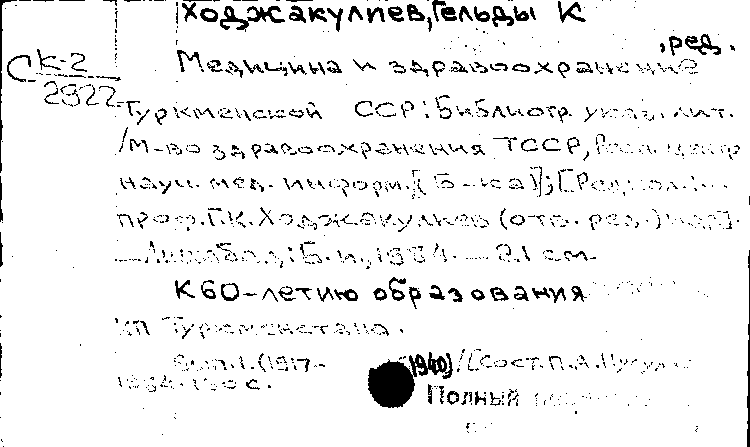 Ходжакулиев, Гельды К
, ред.
С К-2
2922
Медицина и здравоохранение
Туркменской ССР: Библиогр. указ. лит.
/М-во здравоохранения ТССР, Респ. центр
науч. мед. информ. [Б-ка]; [Редкол.:
проф. Г.К. Ходжакулиев (отв. ред.) и др.].
—Ашхабад: Б. и., 1984. — 21 см.
К 60-летию образования
КП Туркменистана.
Вып. 1. (1917-1940)/[Сост. П.А.
1984. 190 с.
Полный